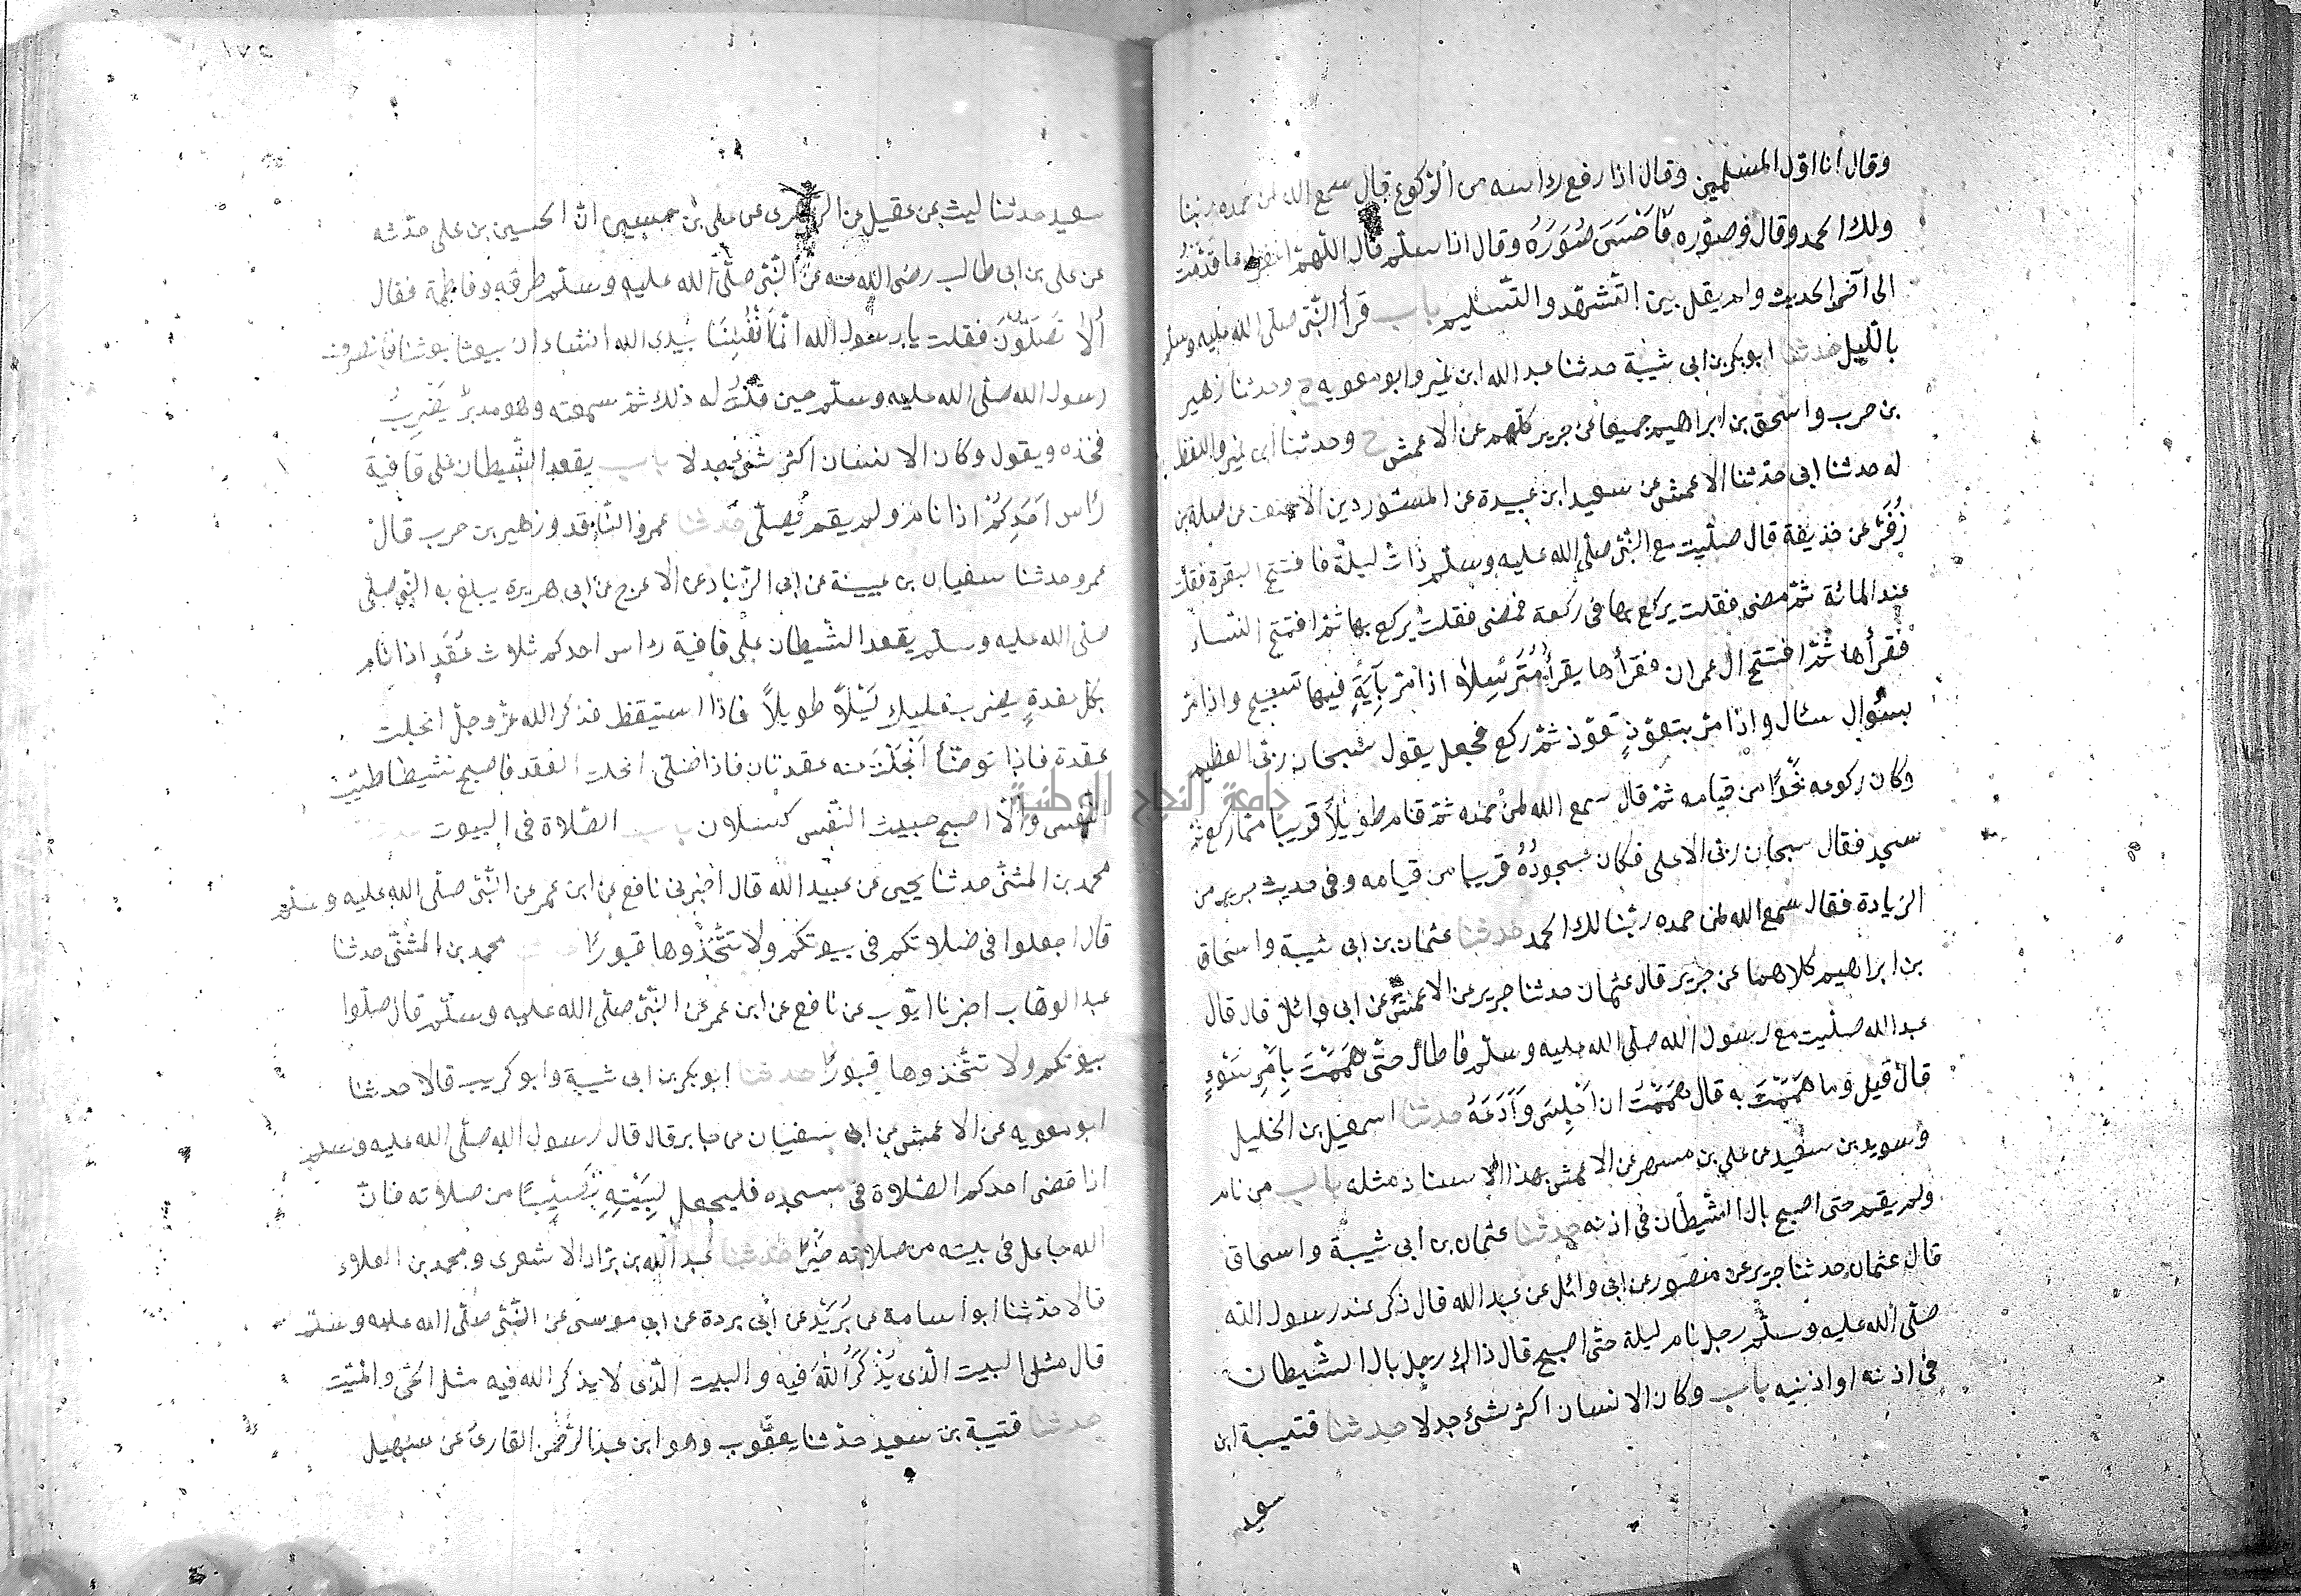 وقال أنا اول المسلمين وقال اذا رفع رأسه من الركوع قال سمع الله لمن حمده ربنا
ولك الحمد وقال وصوره فَأَحْسَنَ صُوَرَهُ وقال اذا سلم قال اللهم اغفر لى ما قدمت
الى آخر الحديث ولم يقل بين التشهد والتسليم باب قرأ النبى صلى الله عليه وسلم
بالليل حدثنا ابو بكر بن ابى شيبة حدثنا عبد الله ابن نمير وابو معويه ح وحدثنا زهير
بن حرب واسحق بن ابراهيم جميعا عن جرير كلهم عن الاعمش ح وحدثنا ابن نمير واللفظ
له حدثنا ابى حدثنا الاعمش عن سعيد ابن عبيدة عن المستورد بن الاحنف عن صلة بن
زُفَرَ عن حذيفة قال صليت مع النبى صلى الله عليه وسلم ذات ليلة فافتتح البقرة فقلت
عند المائة ثم مضى فقلت يركع بها فى ركعة فمضى فقلت يركع بها ثم افتتح النساء
فقرأها ثم افتتح ال عمران فقرأها يقرأ مُتَرَسِّلاً اذا مر بآيَةٍ فيها تسبيح واذا مر
بسُوال سئال واذا مر بتعوّذٍ تعوّذ ثم ركع فجعل يقول سبحان ربى العظيم
وكان ركوعه نحوًا من قيامه ثم قال سمع الله لمن حمده ثم قام طويلاً قريبا مما ركع ثم
سجد فقال سبحان ربى الاعلى فكان سجودُهُ قريبا من قيامه وفى حديث جرير من
الزيادة فقال سمع الله لمن حمده ربنا لك الحمد حدثنا عثمان بن ابى شيبة واسحاق
بن ابراهيم كلاهما عن جرير قال عثمان حدثنا جرير عن الاعمش عن ابى وائل قال قال
عبد الله صليت مع رسول الله صلى الله عليه وسلم فاطال حتى هَمَمْتُ بِأَمْرِ سَوْءٍ
قال قيل وما هَمَمْتَ به قال هَمَمْتُ ان اَجْلِسَ وَأَدَعَهُ حدثنا اسمعيل بن الخليل
وسويد بن سعيد عن علي بن مسهر عن الاعمش بهذا الاسناد مثله باب من نام
ولم يقم حتى اصبح بال الشيطان فى اذنه حدثنا عثمان بن ابى شيبة واسحاق
قال عثمان حدثنا جرير عن منصور عن ابى وائل عن عبد الله قال ذكر عند رسول الله
صلى الله عليه وسلم رجل نام ليلة حتى اصبح قال ذاك رجل بال الشيطان
فى اذنه او اذنيه باب وكان الانسان اكثر شئ جدلا حدثنا قتيبة ابن
سعيد
١٧٥
سعيد حدثنا ليث عن عقيل عن الزهرى عن على بن حسين ان الحسين بن على حدثه
عن على بن ابى طالب رضى الله عنه عن النبى صلى الله عليه وسلم طرقه وفاطمة فقال
أَلاَ تُصَلُّونَ فقلت يا رسول الله انما أَنْفُسُنَا بيدى الله ان شاء ان يبعثنا بعثنا فانصرف
رسول الله صلى الله عليه وسلم حين قلتُ له ذلك ثم سمعته وهو مدبر يَضْرِبُ
فخذه ويقول وكان الانسان اكثر شئ جدلا باب يقعد الشيطان على قافية
رأس اَحَدِكُمْ اذا نام ولم يقم فيُصلّى حدثنا عمرو الناقد وزهير بن حرب قال
عمرو حدثنا سفيان بن عيينة عن ابى الزناد عن الاعرج عن ابى هريرة يبلغ به النبى صلى
صلى الله عليه وسلم يقعد الشيطان على قافية رأس احدكم ثلاث عُقَدٍ اذا نام
بكل عقدةٍ يضرب عليك لَيْلاً طويلاً فاذا استيقظ فذكر الله عز وجل انحلت
عقدة فاذا توضأ اَنْحَلَّتْ عنه عقدتان فاذا صلّى انحلت العقد فاصبح نشيطا طيّب
النفس والا اصبح خبيث النفس كسلان باب الصّلاة فى البيوت
محمد بن المثنى حدثنا يحيى عن عبيد الله قال اخبرنى نافع عن ابن عمر عن النبى صلى الله عليه وسلم
قال اجعلوا فى صلاتكم فى بيوتكم ولا تتّخذوها قبورًا محمد بن المثنّى حدثنا
عبد الوهاب اخبرنا ايّوب عن نافع عن ابن عمر عن النّبى صلّى الله عليه وسلّم قال صلّوا
بيوتكم ولا تتّخذوها قبورًا حدثنا ابو بكر بن ابى شيبة وابو كريب قالا حدثنا
ابو معويه عن الاعمش عن ابى سفيان عن جابر قال قال رسول الله صلى الله عليه وسلم
اذا قضى احدكم الصّلاة فى مسجده فليجعل لِبَيْتِهِ نَصِيبًا من صلاته فانّ
الله جاعل فى بيته من صلاته خيْرًا حدثنا عبد الله بن برّاد الاشعرى ومحمد بن العلاء
قالا حدّثنا ابو اسامة عن بُرَيْدٍ عن أبى بردة عن ابى موسى عن النّبى صلى الله عليه وسلم
قال مثل البيت الّذى يُذْكَرُ اللهُ فيه والبيت الّذى لا يذكر الله فيه مثل الحىّ والميّت
حدثنا قتيبة بن سعيد حدّثنا يعقوب وهو ابن عبد الرحمن القارئ عن سهيل
جامعة النجاح الوطنية